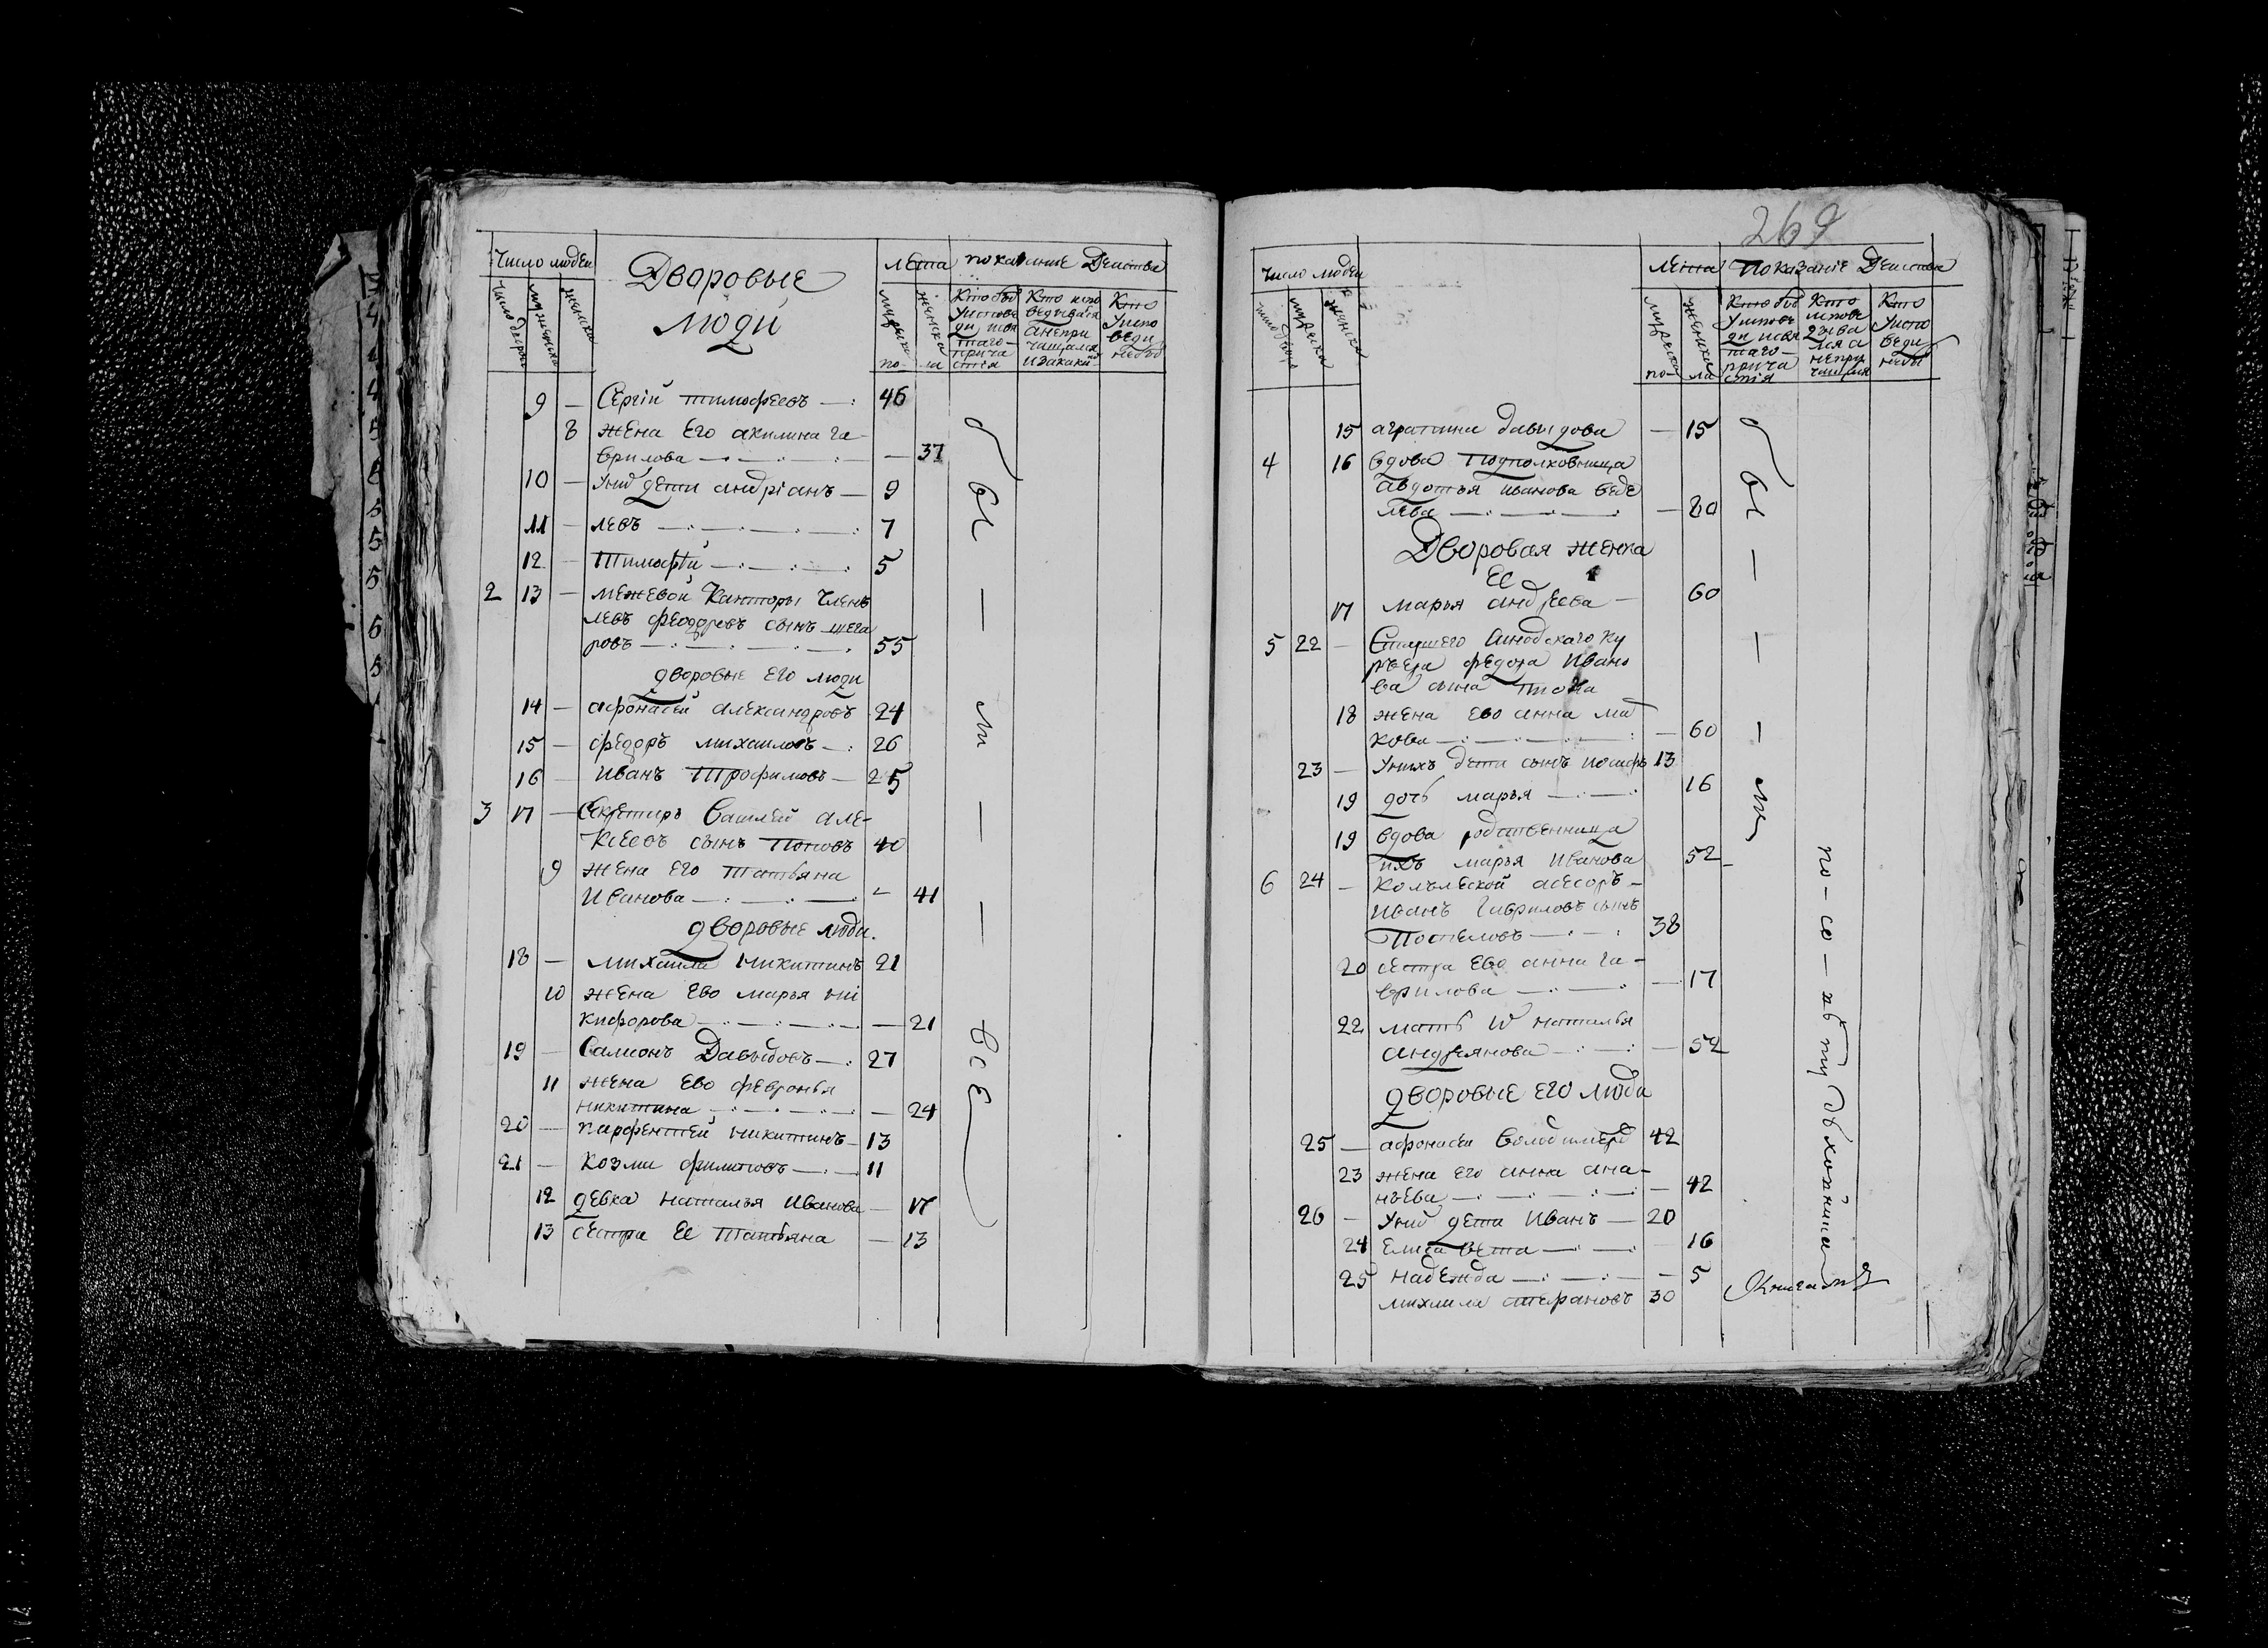 Число людей
Дворовые
люди
лета
показание действа
число дворовъ
мужеска
женска
мужеска
женска
по-
ла
Кто был
у исповѣ
ди и свя
таго
прича
стія
Кто испо
ведывался
а непри
чащался
Кто
у испо
веди
не был
9 — Сергій тимофеевъ — 46
8 жена Его акилина га-
врилова — 37
10 — Унихъ дети андріанъ — 9
11 — левъ — 7
12 — Тимофѣй — 5
2 13 — межевой Канторы членъ
левъ феодоровъ сынъ
ровъ — 55
дворовые его люди
14 — афонасей александровъ 24
15 — федоръ михаиловъ — 26
16 — Иванъ Трофимовъ — 25
3 17 — Секретарь Василей але-
ксеевъ сынъ Поповъ 40
9 жена его татьяна
Иванова — 41
дворовые люди.
18 — михаила никитинъ 21
10 жена Ево марья ни
кифорова — 21
19 — Самсонъ Давыдовъ — 27
11 жена Ево февронья
никитина — 24
20 — парфентей никитинъ — 13
21 — Козма филиповъ — 11
12 девка наталья Иванова — 17
13 сестра Ее татьяна — 13
бы — ли — — все
269
Число людей
лета
Показаніе действа
число дворовъ
мужеска
женска
мужеска
женска
по-
ла
Кто был
у исповѣ
ди и свя
таго
прича
стія
Кто
испове
дыва
лся а
непри
чащался
Кто
у испо
веди
небыл
15 аграпина давыдова — 15
4 16 вдова Подполковница
авдотья иванова
лева — 80
Дворовая женка
Ее
17 марья андреева — 60
5 22 — Синодскаго ку
рьера федора Ивано
ва сына
18 жена ево анна
кова — 60
23 — Унихъ дети сынъ иосифъ 13
19 дочь марья — 16
19 вдова родственница
ихъ марья Иванова 52
6 24 — Колъледской асесоръ —
Иванъ Гавриловъ сынъ
Поспеловъ — 38
20 сестра Ево анна га-
врилова — 17
22 мать наталья
андреянова — 52
дворовые его люди
25 — афонасеи 42
23 жена его анна ана-
ньева — 42
26 — Унихъ дети Иванъ — 20
24 Елисавета — 16
25 надежда — 5
михаила стефановъ 30
бы — — — ли